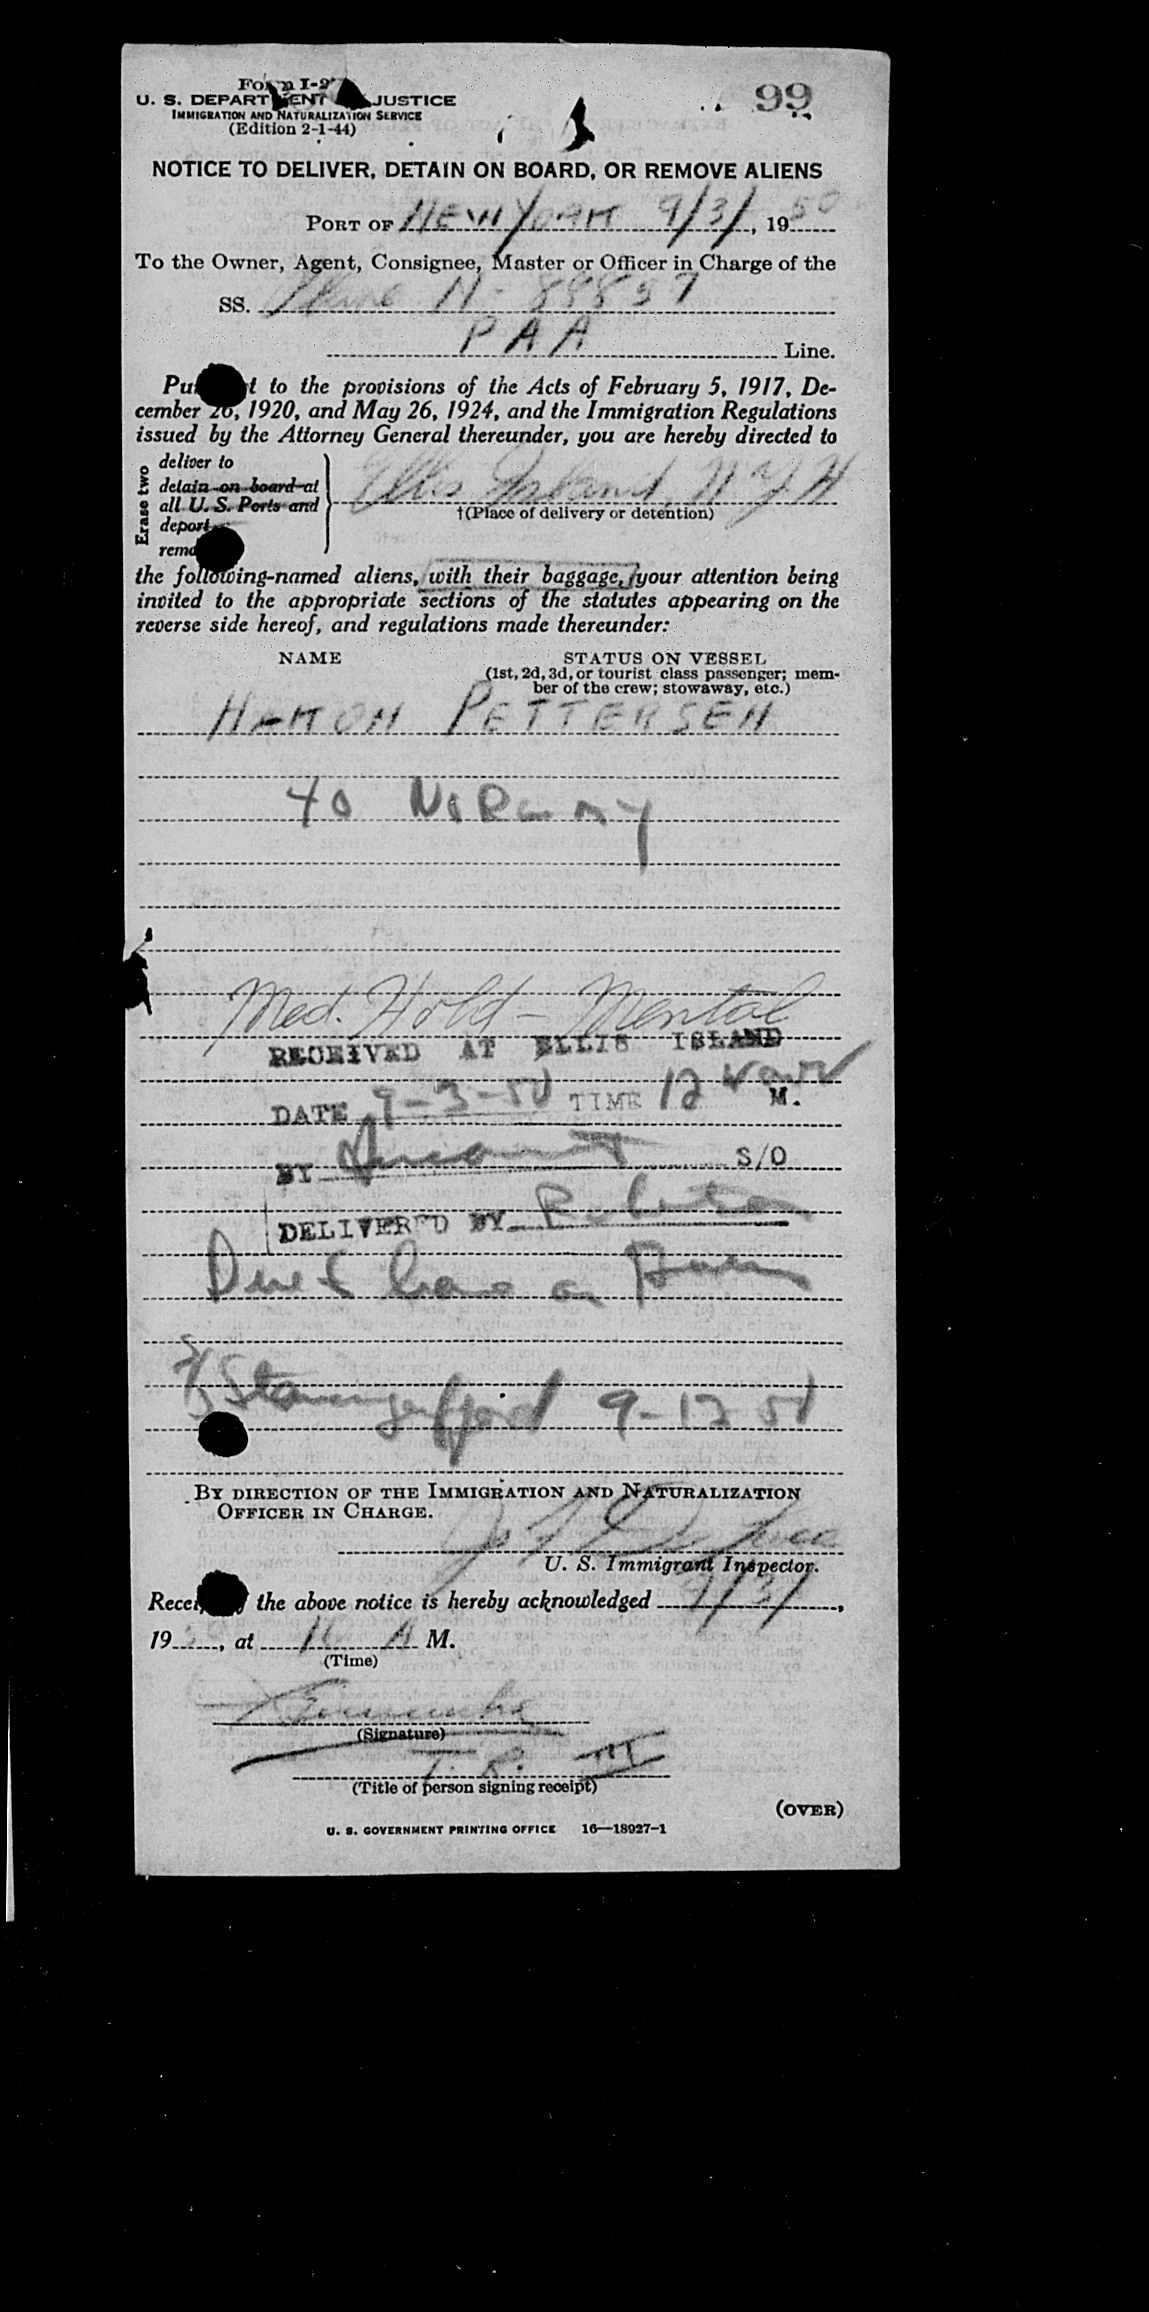 Form I-2
U. S. DEPARTMENT JUSTICE
IMMIGRATION AND NATURALIZATION SERVICE
(Edition 2-1-44)
99
NOTICE TO DELIVER, DETAIN ON BOARD, OR REMOVE ALIENS
PORT OF NEW YORK 9/3/, 19 50
To the Owner, Agent, Consignee, Master or Officer in Charge of the
SS. Plane N- 88837
PAA Line.
Pu t to the provisions of the Acts of February 5, 1917, De-
cember 26, 1920, and May 26, 1924, and the Immigration Regulations
issued by the Attorney General thereunder, you are hereby directed to
Erase two
deliver to
detain on board at
all U. S. Ports and
deport
remo
Ellis Island, N Y H
†(Place of delivery or detention)
the following-named aliens, with their baggage, your attention being
invited to the appropriate sections of the statutes appearing on the
reverse side hereof, and regulations made thereunder:
NAME STATUS ON VESSEL
(1st, 2d, 3d, or tourist class passenger; mem-
ber of the crew; stowaway, etc.)
HAKON PETTERSEN
40 Norway
Med. Hold - Mental
RECEIVED AT ELLIS ISLAND
DATE 9-3-50 TIME 12 M.
BY S/O
DELIVERED BY
on
Stavangerfjord 9-12-50
BY DIRECTION OF THE IMMIGRATION AND NATURALIZATION
OFFICER IN CHARGE.
U. S. Immigrant Inspector.
Recei the above notice is hereby acknowledged 9/3/,
19 50, at A M.
(Time)
(Signature)
T. R.
(Title of person signing receipt)
(OVER)
U. S. GOVERNMENT PRINTING OFFICE 16—18927-1